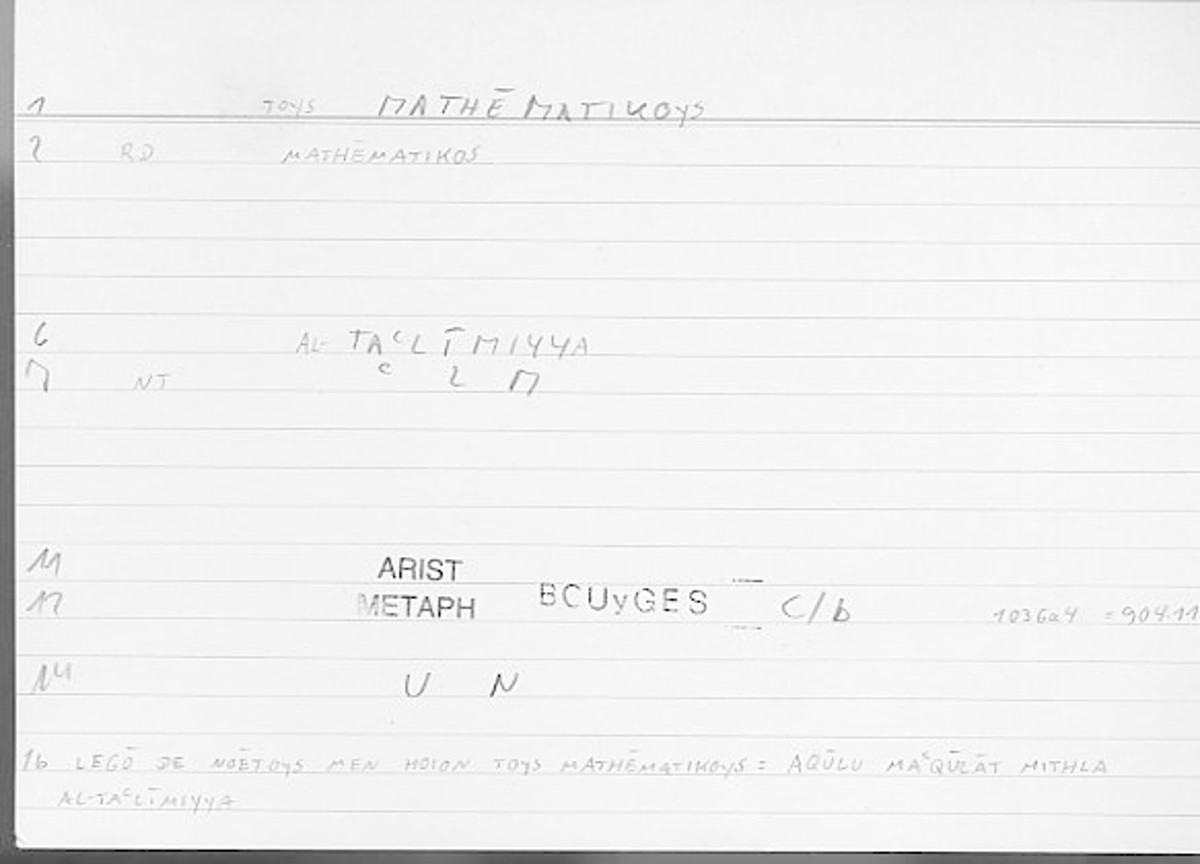 1 TOYS MATHĒMATIKOYS
2 RD MATHĒMATIKOS
6 AL-TAᶜLĪMIYYA
7 NT ᶜ L M
11 ARIST
12 METAPH BOUyGES C/b 1036a4 = 904.11
14 U N
16 LEGŌ DE NOĒTOYS MEN HOION TOYS MATHĒMATIKOYS = AQŪLU MAᶜQŪLĀT MITHLA
AL-TAᶜLĪMIYYA